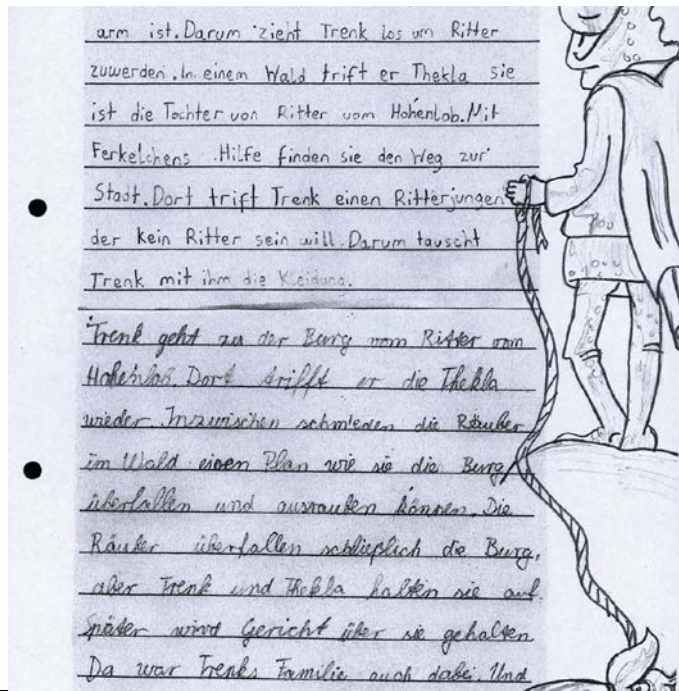 arm ist. Darum zieht Trenk los um Ritter
zuwerden. In einem Wald trift er Thekla sie
ist die Tochter von Ritter vom Hohenlob. Mit
Ferkelchens Hilfe finden sie den Weg zur
Stadt. Dort trift Trenk einen Ritterjungen
der kein Ritter sein will. Darum tauscht
Trenk mit ihm die Kleidung.
Trenk geht zu der Burg vom Ritter vom
Hohenlob. Dort trifft er die Thekla
wieder. Inzwischen schmieden die Räuber
im Wald einen Plan wie sie die Burg
überfallen und ausrauben können. Die
Räuber überfallen schließlich die Burg,
aber Trenk und Thekla halten sie auf.
Später wird Gericht über sie gehalten
Da war Trenks Familie auch dabei. Und